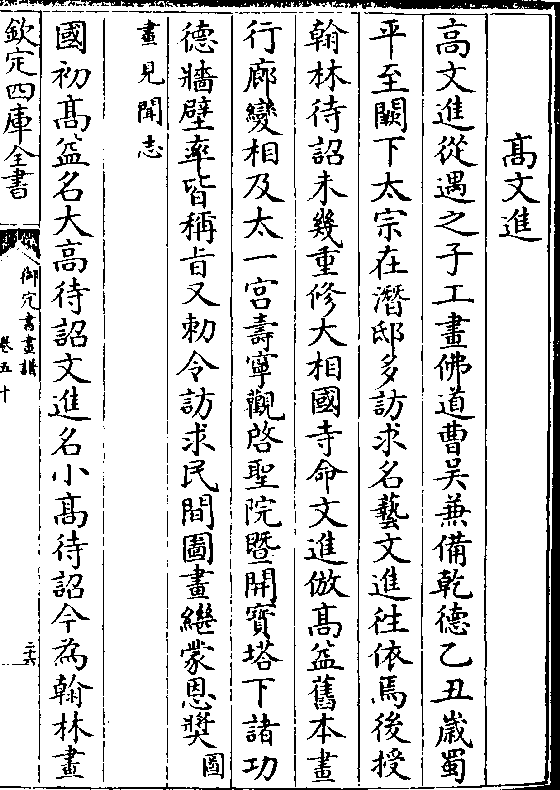 高文進
高文進從遇之子工畫佛道曹吴兼備乾德乙丑歲蜀
平至闕下太宗在潛邸多訪求名藝文進往依焉後授
翰林待詔未幾重修大相國寺命文進倣髙益舊本畫
行廊變相及太一宫壽寧觀啓聖院暨開寳塔下諸功
德牆壁率皆稱㫖又勅令訪求民間圖畫繼蒙恩奬圖
畫見聞志
國初髙益名大高待詔文進名小髙待詔今為翰林畫
欽定四庫全書
御定書畫譜
卷五十
二六